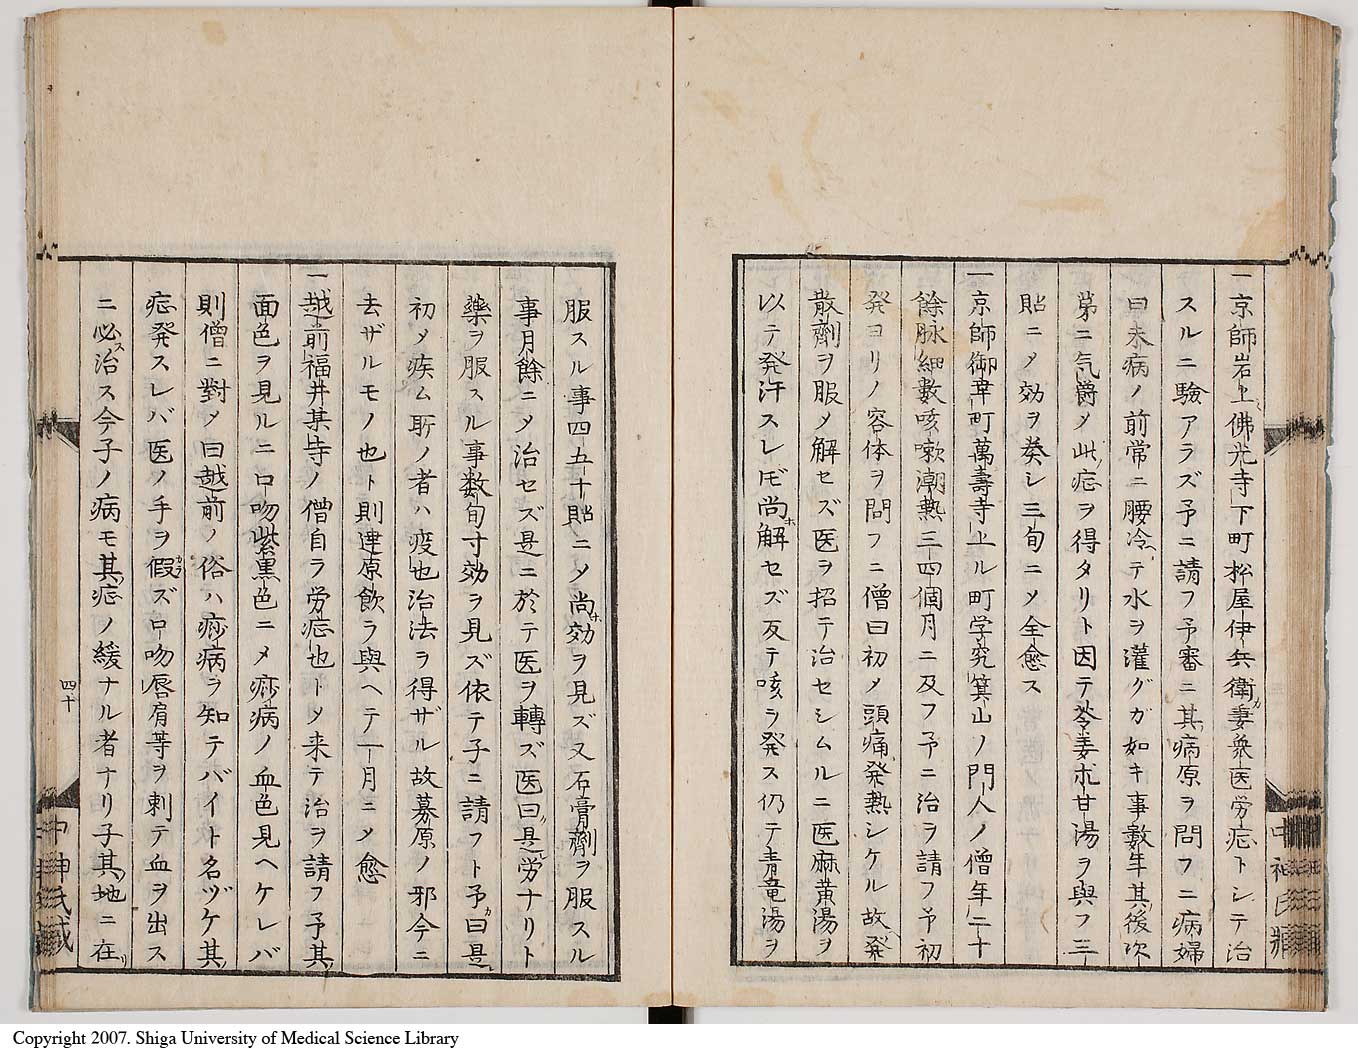 一京師岩上佛光寺下町松屋伊兵衛妻衆医労症トシテ治
スルニ驗アラズ予ニ請フ予審ニ其病原ヲ問フニ病婦
曰未病ノ前常ニ腰冷テ水ヲ灌グガ如キ事數年其後次
第ニ気欝メ此症ヲ得タリト因テ苓姜朮甘湯ヲ與フ三
貼ニメ効ヲ奏シ三旬ニメ全愈ス
一京師御幸町萬壽寺上ル町学究箕山ノ門人ノ僧年二十
餘脉細數咳嗽潮熱三四個月ニ及フ予ニ治ヲ請フ予初
発ヨリノ容体ヲ問フニ僧曰初メ頭痛発熱シケル故発
散劑ヲ服メ解セズ医ヲ招テ治セシムルニ医麻黄湯ヲ
以テ発汗スレㇳ゙モ尚解セズ反テ咳ヲ発ス仍テ青竜湯ヲ
服スル事四五十貼ニメ尚効ヲ見ズ又石膏劑ヲ服スル
事月餘ニメ治セズ是ニ於テ医ヲ轉ズ医曰是労ナリト
藥ヲ服スル事数旬寸効ヲ見ズ依テ子ニ請フト予曰是
初メ疾ム所ノ者ハ疫也治法ヲ得ザル故募原ノ邪今ニ
去ザルモノ也ト則達原飲ヲ與ヘテ一月ニメ愈
一越前福井某寺ノ僧自ラ労症也トメ来テ治ヲ請フ予其
面色ヲ見ルニ口吻紫黒色ニメ痧病ノ血色見ヘケレバ
則僧ニ對メ曰越前ノ俗ハ痧病ヲ知テバイト名ヅケ其
症発スレバ医ノ手ヲ假ズ口吻唇肩等ヲ刺テ血ヲ出ス
ニ必治ス今子ノ病モ其症ノ緩ナル者ナリ子其地ニ在
四十
中神氏藏